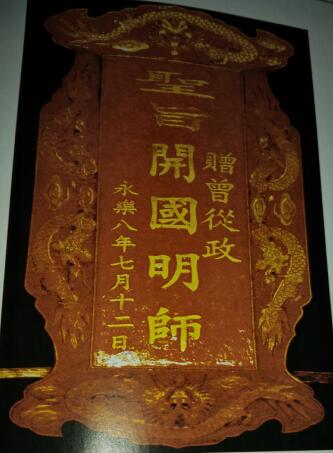 聖旨
贈曾從政
開國明師
永樂八年七月十二日